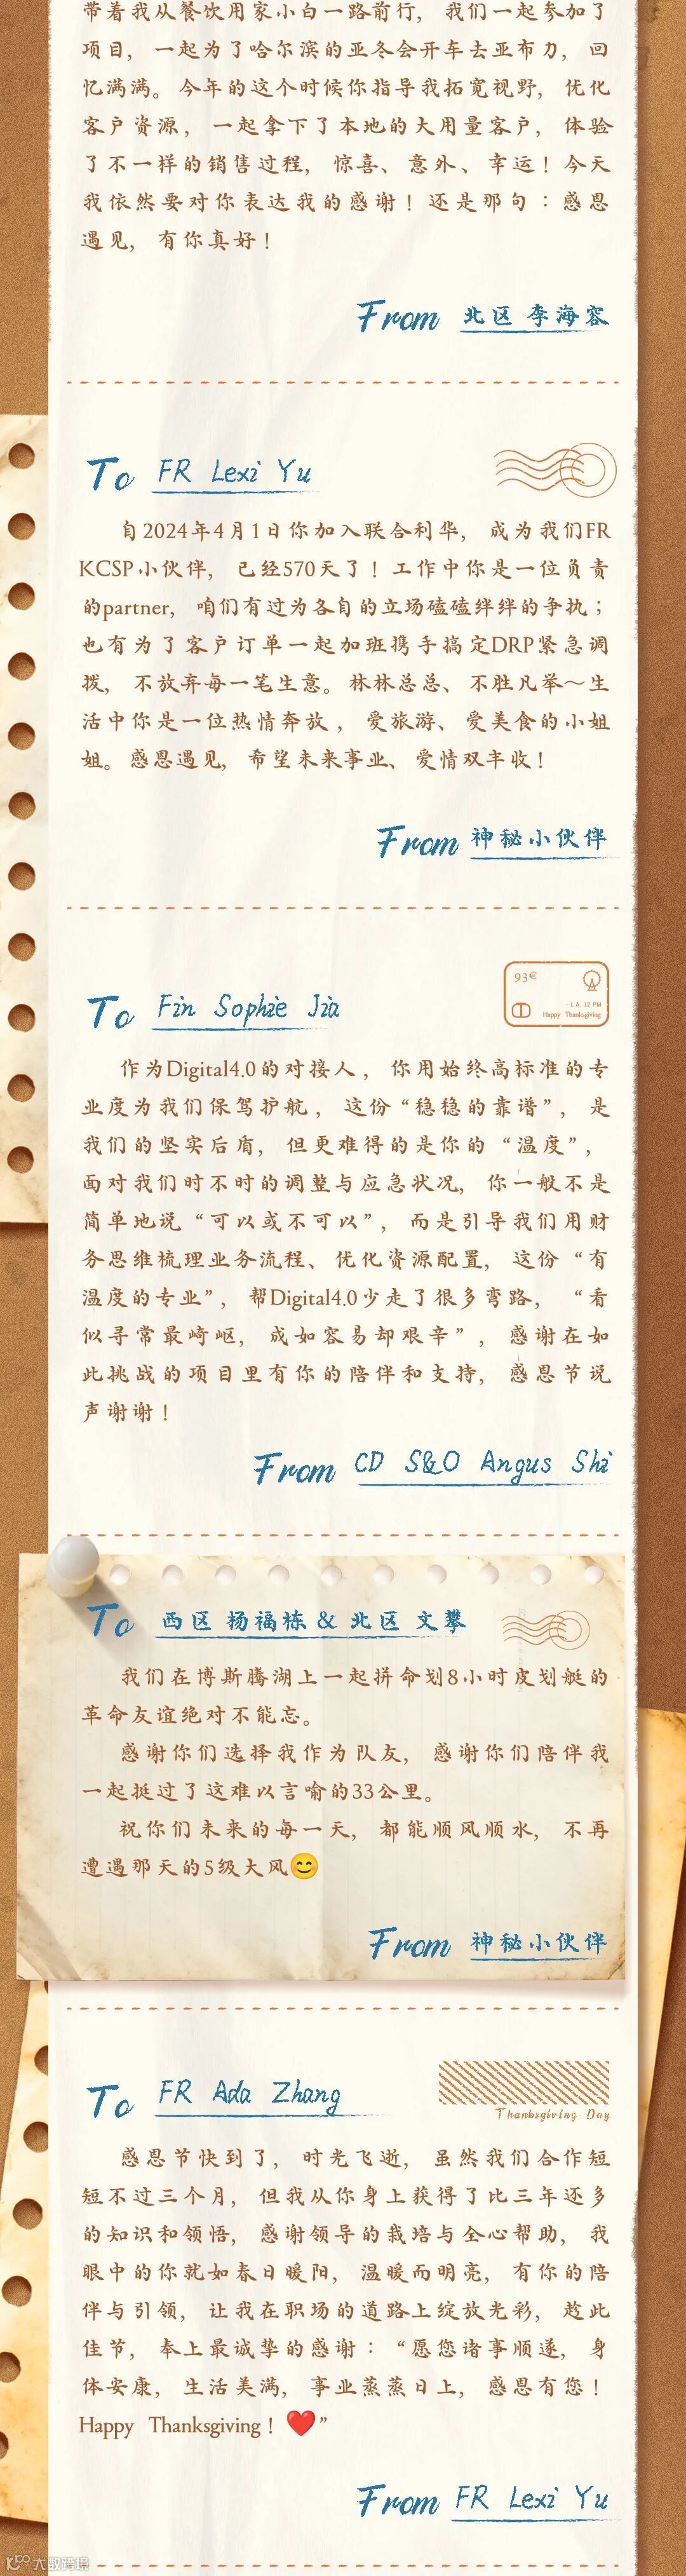 带着我从餐饮用家小白一路前行，我们一起参加了
项目，一起为了哈尔滨的亚冬会开车去亚布力，回
忆满满。今年的这个时候你指导我拓宽视野，优化
客户资源，一起拿下了本地的大用量客户，体验
了不一样的销售过程，惊喜、意外、幸运！今天
我依然要对你表达我的感谢！还是那句：感恩
遇见，有你真好！
From 北区 李海容
To FR Lexi Yu
自2024年4月1日你加入联合利华，成为我们FR
KCSP小伙伴，已经570天了！工作中你是一位负责
的partner，咱们有过为各自的立场磕磕绊绊的争执；
也有为了客户订单一起加班携手搞定DRP紧急调
拨，不放弃每一笔生意。林林总总、不胜凡举～生
活中你是一位热情奔放，爱旅游、爱美食的小姐
姐。感恩遇见，希望未来事业、爱情双丰收！
From 神秘小伙伴
To Fin Sophie Jia
93€
- L A, 12 PM
Happy Thanksgiving
作为Digital4.0的对接人，你用始终高标准的专
业度为我们保驾护航，这份“稳稳的靠谱”，是
我们的坚实后盾，但更难得的是你的“温度”，
面对我们时不时的调整与应急状况，你一般不是
简单地说“可以或不可以”，而是引导我们用财
务思维梳理业务流程、优化资源配置，这份“有
温度的专业”，帮Digital4.0少走了很多弯路，“看
似寻常最崎岖，成如容易却艰辛”，感谢在如
此挑战的项目里有你的陪伴和支持，感恩节说
声谢谢！
From CD S&O Angus Shi
To 西区 杨福栋 & 北区 文攀
我们在博斯腾湖上一起拼命划8小时皮划艇的
革命友谊绝对不能忘。
感谢你们选择我作为队友，感谢你们陪伴我
一起挺过了这难以言喻的33公里。
祝你们未来的每一天，都能顺风顺水，不再
遭遇那天的5级大风😊
From 神秘小伙伴
To FR Ada Zhang
Thanksgiving Day
感恩节快到了，时光飞逝，虽然我们合作短
短不过三个月，但我从你身上获得了比三年还多
的知识和领悟，感谢领导的栽培与全心帮助，我
眼中的你就如春日暖阳，温暖而明亮，有你的陪
伴与引领，让我在职场的道路上绽放光彩，趁此
佳节，奉上最诚挚的感谢：“愿您诸事顺遂，身
体安康，生活美满，事业蒸蒸日上，感恩有您！
Happy Thanksgiving！❤️”
From FR Lexi Yu
大数跨境